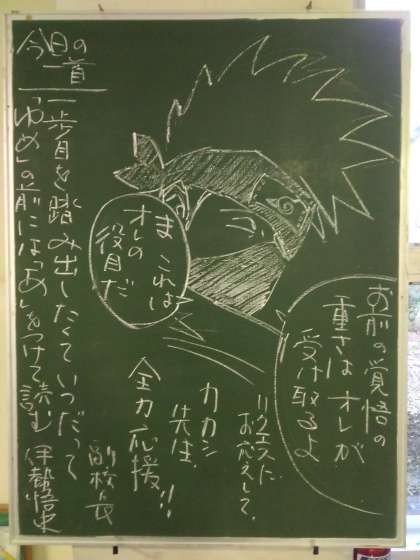 お前の覚悟の
重さは オレが
受け取るよ
ま これは
オレの
役目だ
リクエストに
お応えして、
カカシ
先生、
全力応援!!
副校長
今日の
一首
一歩目を踏み出したくていつだって
「ゆめ」の前には「あ」をつけて読む 伊勢悟史